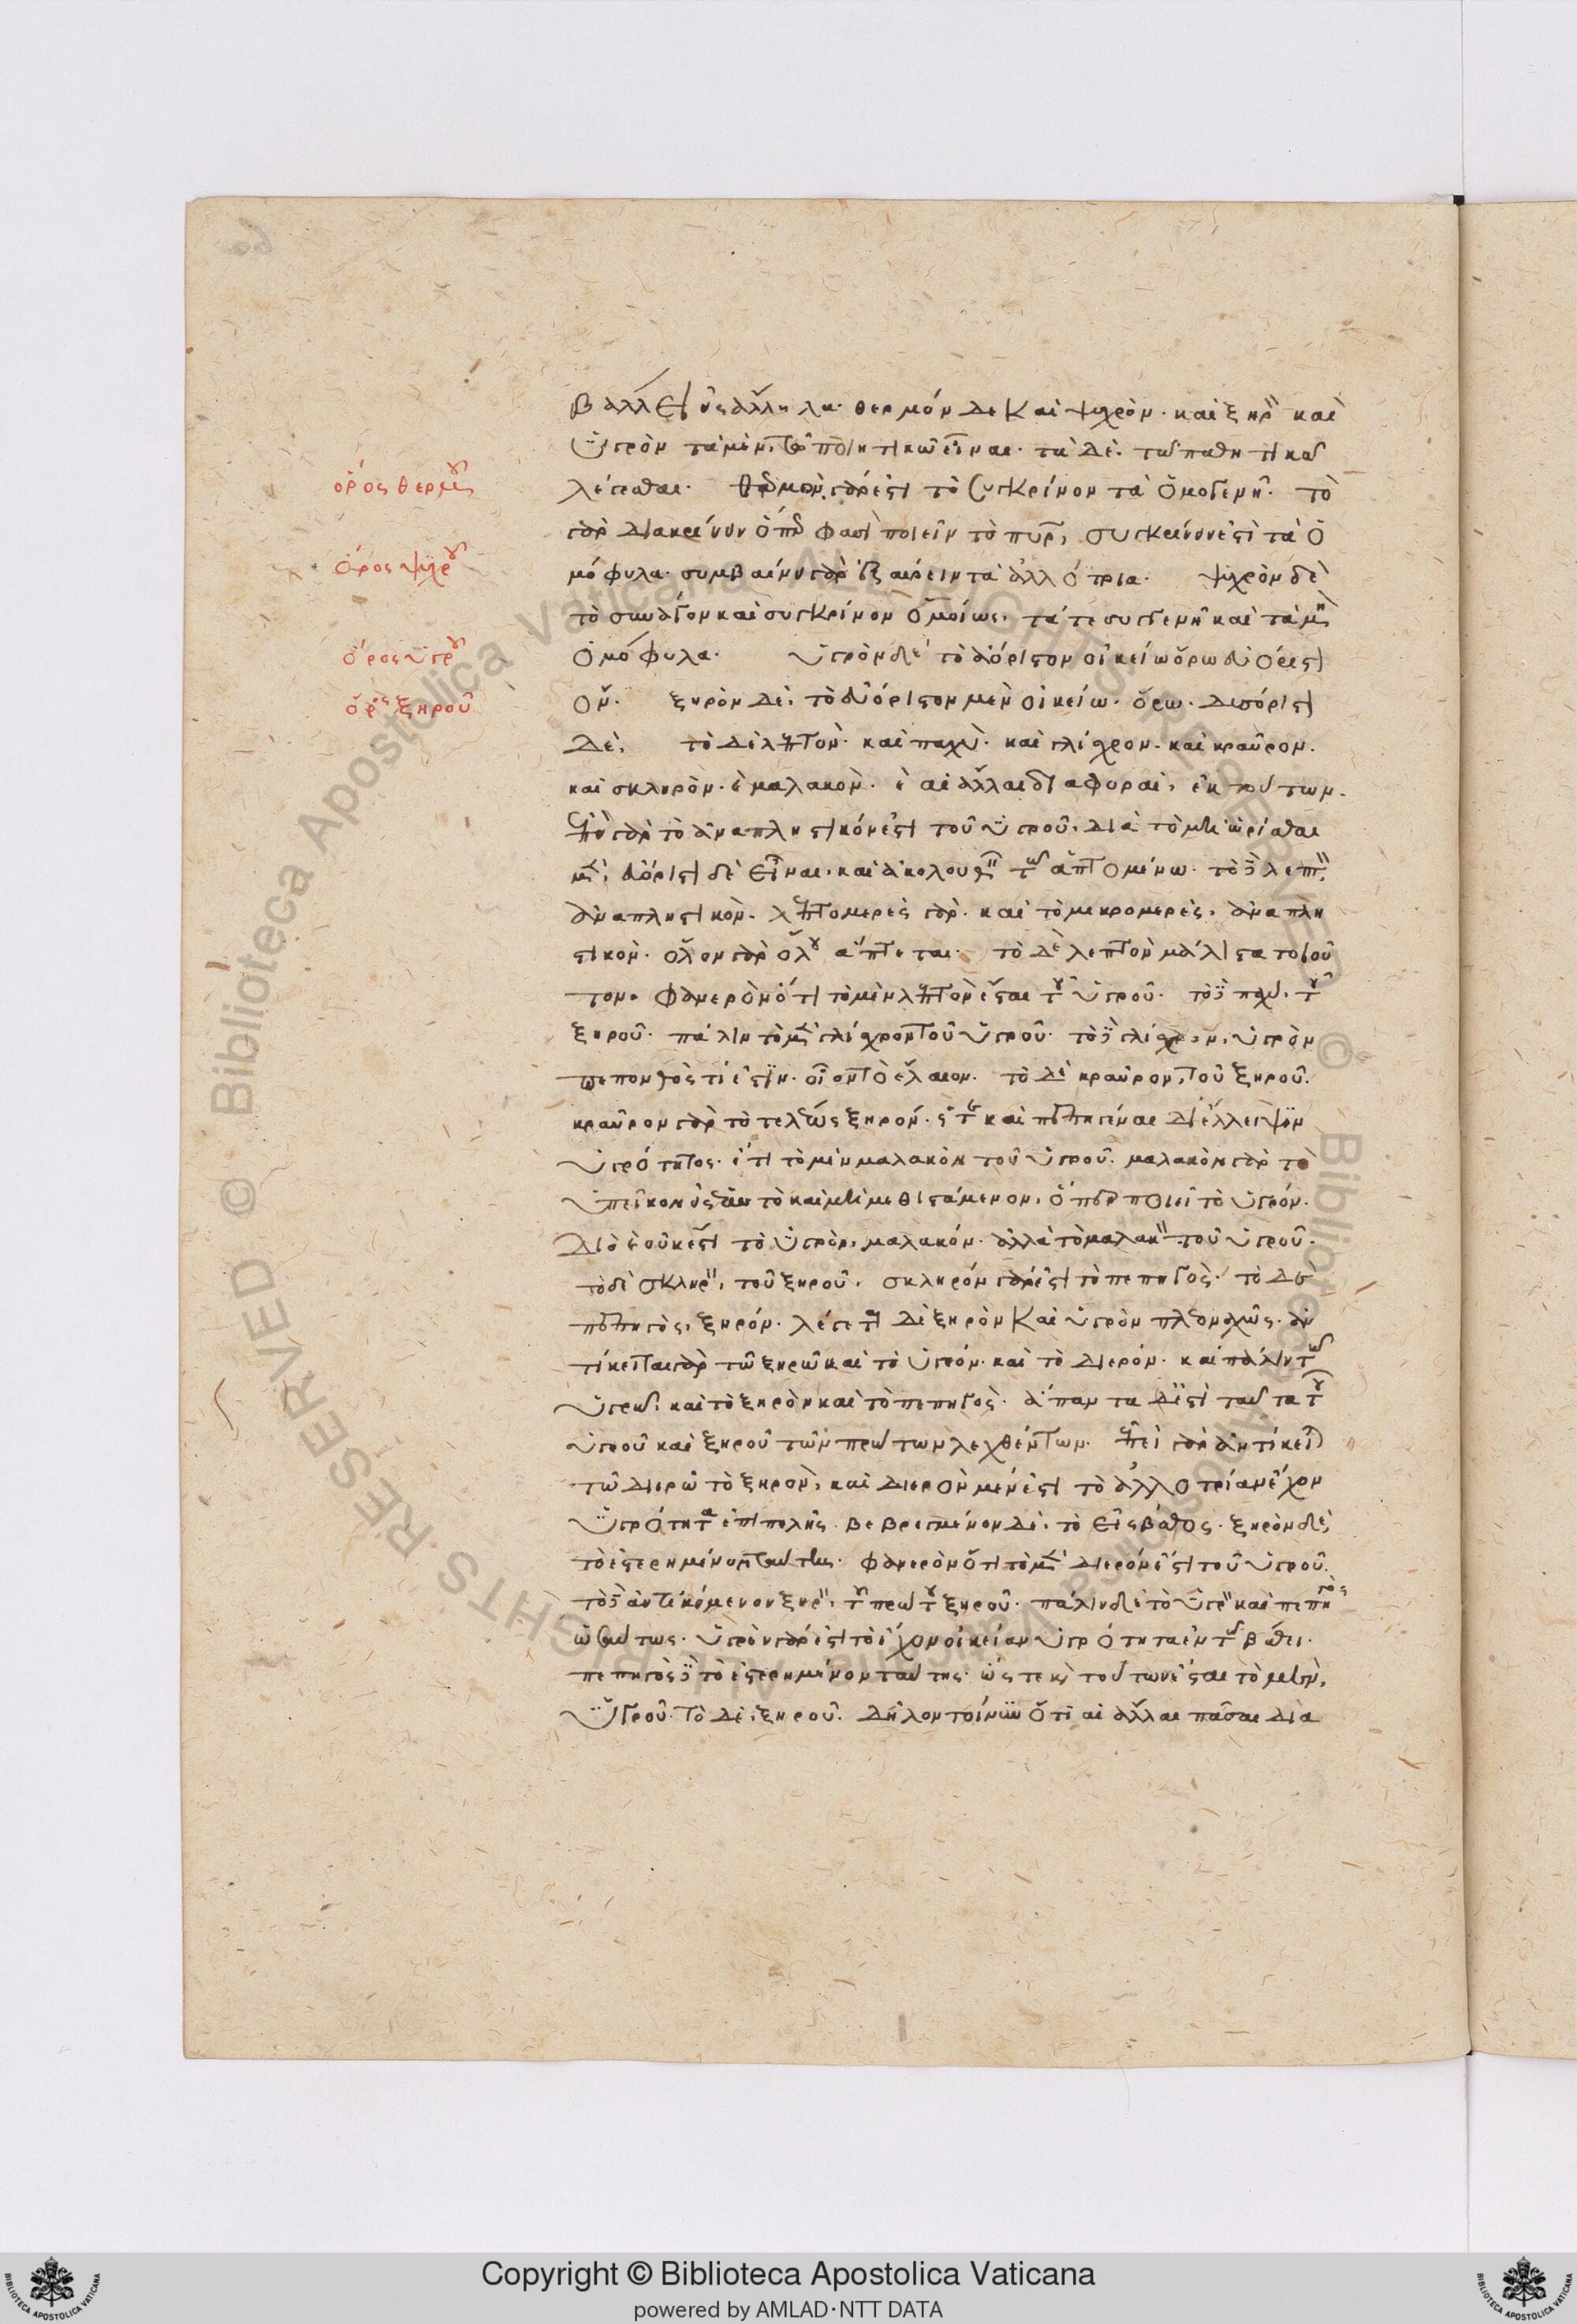 βάλλει εἰς ἄλληλα· θερμὸν δὲ καὶ ψυχρὸν· καὶ ξηρὸν καὶ
ὑγρὸν τὰ μὲν, τῶ ποιητικῶ εἶναι· τὰ δὲ, τῶ παθητικῶ
ὅρος θερμοῦ
λέγεσθαι· θερμὸν γάρ ἐστι τὸ συγκρίνον τὰ ὁμογενῆ· τὸ
γὰρ διακρίνειν ὅπερ φασὶ ποιεῖν τὸ πῦρ, συγκρίνειν ἐστὶ τὰ ὁ
ὅρος ψυχροῦ
μόφυλα· συμβαίνει γὰρ ἐξαιρεῖν τὰ ἀλλότρια· ψυχρὸν δὲ
τὸ συνάγον καὶ συγκρίνον ὁμοίως, τά τε συγγενῆ καὶ τὰ μὴ
ὅρος ὑγροῦ
ὁμόφυλα· ὑγρὸν δὲ τὸ ἀόριστον οἰκείω ὅρω εὐόριστον
ὅρος ξηροῦ
ὄν· ξηρὸν δὲ, τὸ εὐόριστον μὲν οἰκείω ὅρω· δυσόριστον
δὲ, τὸ δὲ λεπτὸν· καὶ παχὺ· καὶ γλίσχρον· καὶ κραῦρον·
καὶ σκληρὸν· καὶ μαλακὸν· καὶ αἱ ἄλλαι διαφοραὶ, ἐκ τούτων·
ἐπεὶ γὰρ τὸ ἀναπληστικόν ἐστι τοῦ ὑγροῦ, διὰ τὸ μὴ ὡρίσθαι
μὲν, εὐόριστον δὲ εἶναι, καὶ ἀκολουθεῖν τῶ ἁπτομένω· τὸ δὲ λεπτὸν,
ἀναπληστικὸν· λεπτομερὲς γὰρ· καὶ τὸ μικρομερὲς, ἀναπλη
στικὸν· ὅλον γὰρ ὅλου ἅπτεται· τὸ δὲ λεπτὸν μάλιστα τοιοῦ
τον· φανερὸν ὅτι τὸ μὲν λεπτὸν ἔσται τοῦ ὑγροῦ· τὸ δὲ παχὺ, τοῦ
ξηροῦ· πάλιν τὸ μὲν γλίσχρον τοῦ ὑγροῦ· τὸ δὲ γλίσχρον, ὑγρὸν
πεπονθός τί ἐστιν· οἷον τὸ ἔλαιον· τὸ δὲ κραῦρον, τοῦ ξηροῦ·
κραῦρον γὰρ τὸ τελέως ξηρόν· ὥστε καὶ πεπηγέναι δι' ἔλλειψιν
ὑγρότητος· ἔτι τὸ μὲν μαλακὸν τοῦ ὑγροῦ· μαλακὸν γὰρ τὸ
ὑπεῖκον εἰς ἑαυτὸ καὶ μὴ μεθιστάμενον, ὅπερ ποιεῖ τὸ ὑγρόν·
διὸ καὶ οὐκ ἔστι τὸ ὑγρὸν, μαλακόν· ἀλλὰ τὸ μαλακὸν τοῦ ὑγροῦ·
τὸ δὲ σκληρὸν, τοῦ ξηροῦ· σκληρὸν γάρ ἐστι τὸ πεπηγὸς· τὸ δὲ
πεπηγὸς, ξηρόν· λέγεται δὲ ξηρὸν καὶ ὑγρὸν πλεοναχῶς· ἀν
τίκειται γὰρ τῶ ξηρῶ καὶ τὸ ὑγρόν· καὶ τὸ διερόν· καὶ πάλιν τῶ
ὑγρῶ, καὶ τὸ ξηρὸν καὶ τὸ πεπηγὸς· ἅπαντα δέ ἐστι ταῦτα τοῦ
ὑγροῦ καὶ ξηροῦ τῶν πρώτων λεχθέντων· ἐπεὶ γὰρ ἀντίκειται
τῶ διερῶ τὸ ξηρὸν, καὶ διερὸν μέν ἐστι τὸ ἀλλοτρίαν ἔχον
ὑγρότητα ἐπιπολῆς· βεβρεγμένον δὲ, τὸ εἰς βάθος· ξηρὸν δὲ,
τὸ ἐστερημένον ταύτης· φανερὸν ὅτι τὸ μὲν διερόν ἐστι τοῦ ὑγροῦ·
τὸ δὲ ἀντικείμενον ξηρὸν, τοῦ πρώτου ξηροῦ· πάλιν δὲ τὸ ὑγρὸν καὶ πεπηγὸς
ὡσαύτως· ὑγρὸν γάρ ἐστι τὸ ἔχον οἰκείαν ὑγρότητα ἐν τῶ βάθει·
πεπηγὸς δὲ τὸ ἐστερημένον ταύτης· ὥστε καὶ τούτων ἔσται τὸ μὲν,
ὑγροῦ· τὸ δὲ, ξηροῦ· δῆλον τοίνυν ὅτι αἱ ἄλλαι πᾶσαι δια
Copyright © Biblioteca Apostolica Vaticana
powered by AMLAD·NTT DATA